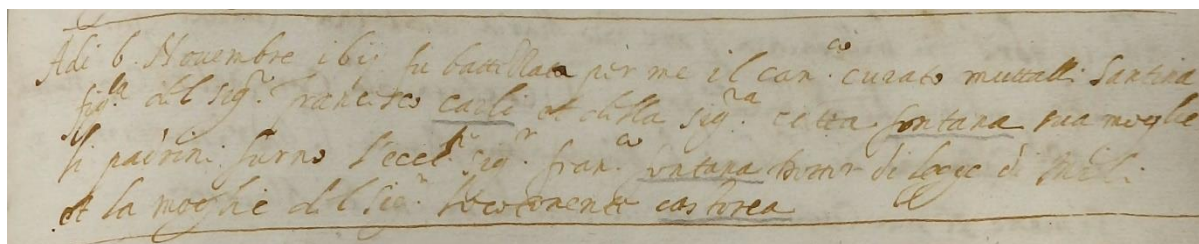 Adi 6. Novembre 1611 fu battizzata per me il can.co curato muttalli Santina
fig.la del sig.r Francesco carli et della sig.ra cecca fontana sua moglie
li padrini furno l'ecc.te sig.r fran.co fontana dottor di legge di
et la moglie del sig.r locotenente castorea